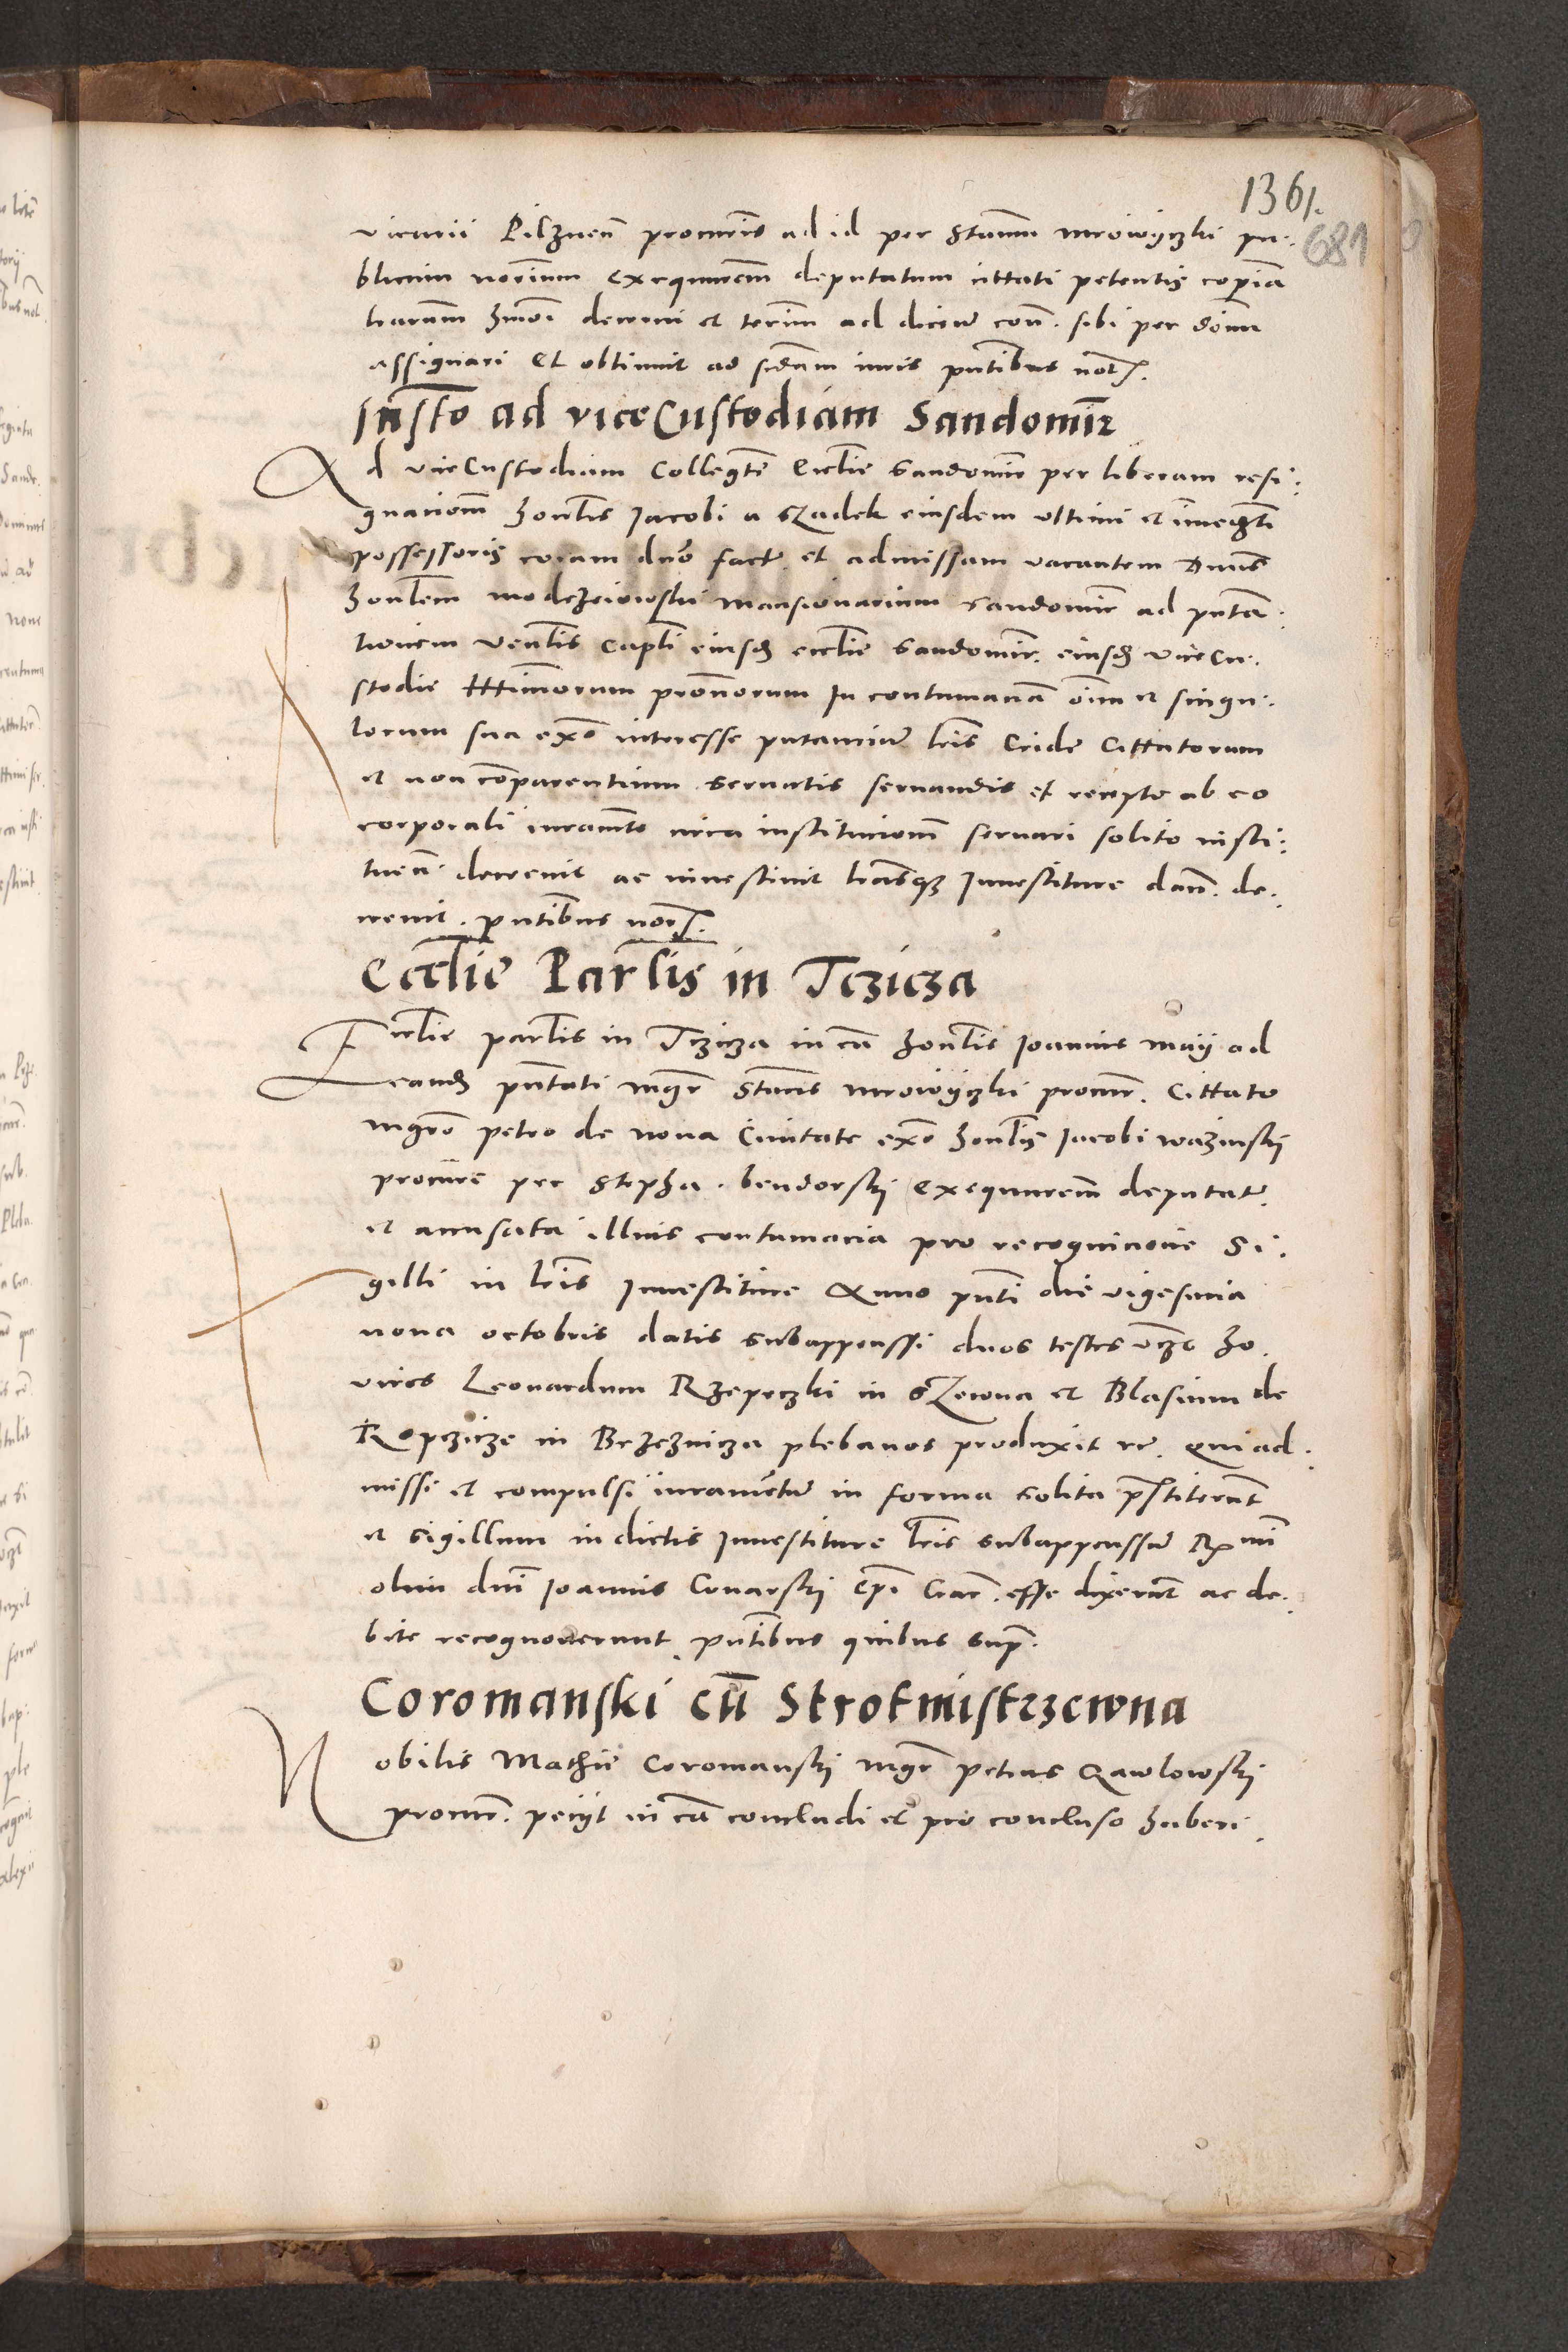 1361.
681
vicarii Pilznen procuris ad id per Stanm Mrowyczki pu-
blicum notium exequutem deputatum cittati petentis copia
harum decerni et terim ad dicen con. sibi per dominu
assignari et obtinuit ad sedam iuris pntibus not.
Insto ad viceCustodiam Sandomir
Ad viceCustodiam Collegte Ecclie Sandomir per liberam resi-
gnacionem honlis Jacobi a Szadek eiusdem ultimi et immegti
possessoris coram dno fact et admissam vacantem Dnus
honlem Modrzeiowski mansionarium Sandomir ad pnta-
tionem venlis Capli eiusd ecclie Sandomir. eiusd viceCu-
stodie ttimorum pronorum In contumacia oim et singu-
lorum sua exo interesse putancium lris Cride Cittatorum
et non comparentium servatis servandis et recepto ab eo
corporali iuramto circa institucionem servari solito insti-
tuen. decrevit ac investivit lrasq Investiture dan. de-
crevit. pntibus not.
Ecclie Parlis in Tczicza
Ecclie parlis in Tczicza in ca honlis Joannis may ad
eand pntati mgr Stanis Mrowyczki procur. Cittato
mgro petro de nova Civitate exo honlis Jacobi wazinskj
procure per Stepha. bendorskj exequutem deputat
et accusata illius contumacia pro recognicione Si-
gilli in lris Investiture Anno pnti die vigesima
nona octobris datis subappenssi duos testes vcz ho.
viros Leonardum Rzepeczki in Szewna et Blasium de
Ropczicze in Brzeznicza plebanos produxit rc. Qui ad-
missi et compulsi iuramentum in forma solita prestiterunt
et sigillum in dictis Investiture lris subappenssum Rmi
olim dni Joannis Conarskj Epi Crac. esse dixerunt ac de-
bite recognoverunt pntibus quibus sup.
Coromanski cu Strotmistrzewna
Nobilis Mathie Coromanskj mgr petrus Gawlowskj
procur. peciit in ca concludi et pro concluso haberi.